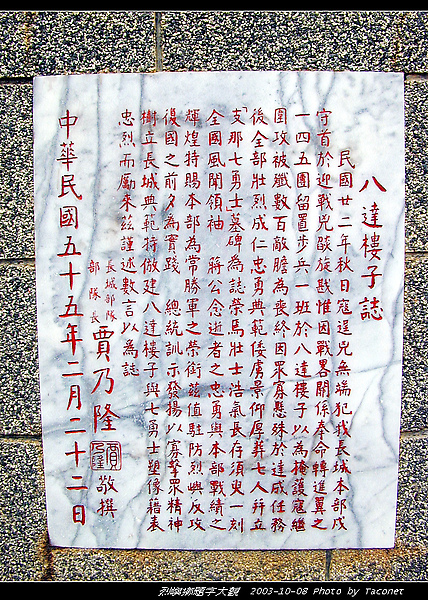 八達樓子誌
民國廿二年秋日寇逞兇無端犯我長城本部戍
守首於迎戰兇燄旋戢惟因戰畧關係奉命轉進翼之
一四五團留置步兵一班於八達樓子以為掩護寇繼
圍攻被殲數百敵膽為喪終因眾寡懸殊於達成任務
後全部壯烈成仁忠勇典範倭虜景仰厚葬七人并立
「支那七勇士墓碑」為誌榮焉壯士浩氣長存須臾一刻
全國風聞領袖 蔣公念逝者之忠勇與本部戰績之
輝煌特賜本部為常勝軍之榮銜茲值駐防烈嶼反攻
復國之前夕為實踐 總統訓示發揚以寡擊眾精神
樹立長城典範特倣建八達樓子與七勇士塑像藉表
忠烈而勵來茲謹述數言以為誌
長城部隊
部隊長 賈乃隆 敬撰
中華民國五十五年二月二十二日
烈嶼鄉題字大觀 2003-10-08 Photo by Taconet